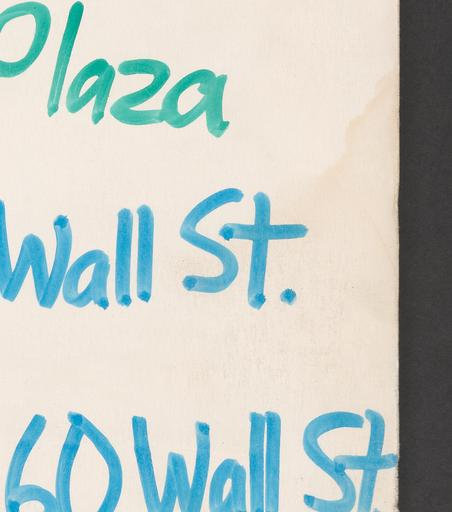 Plaza
Wall St.
60 Wall St.